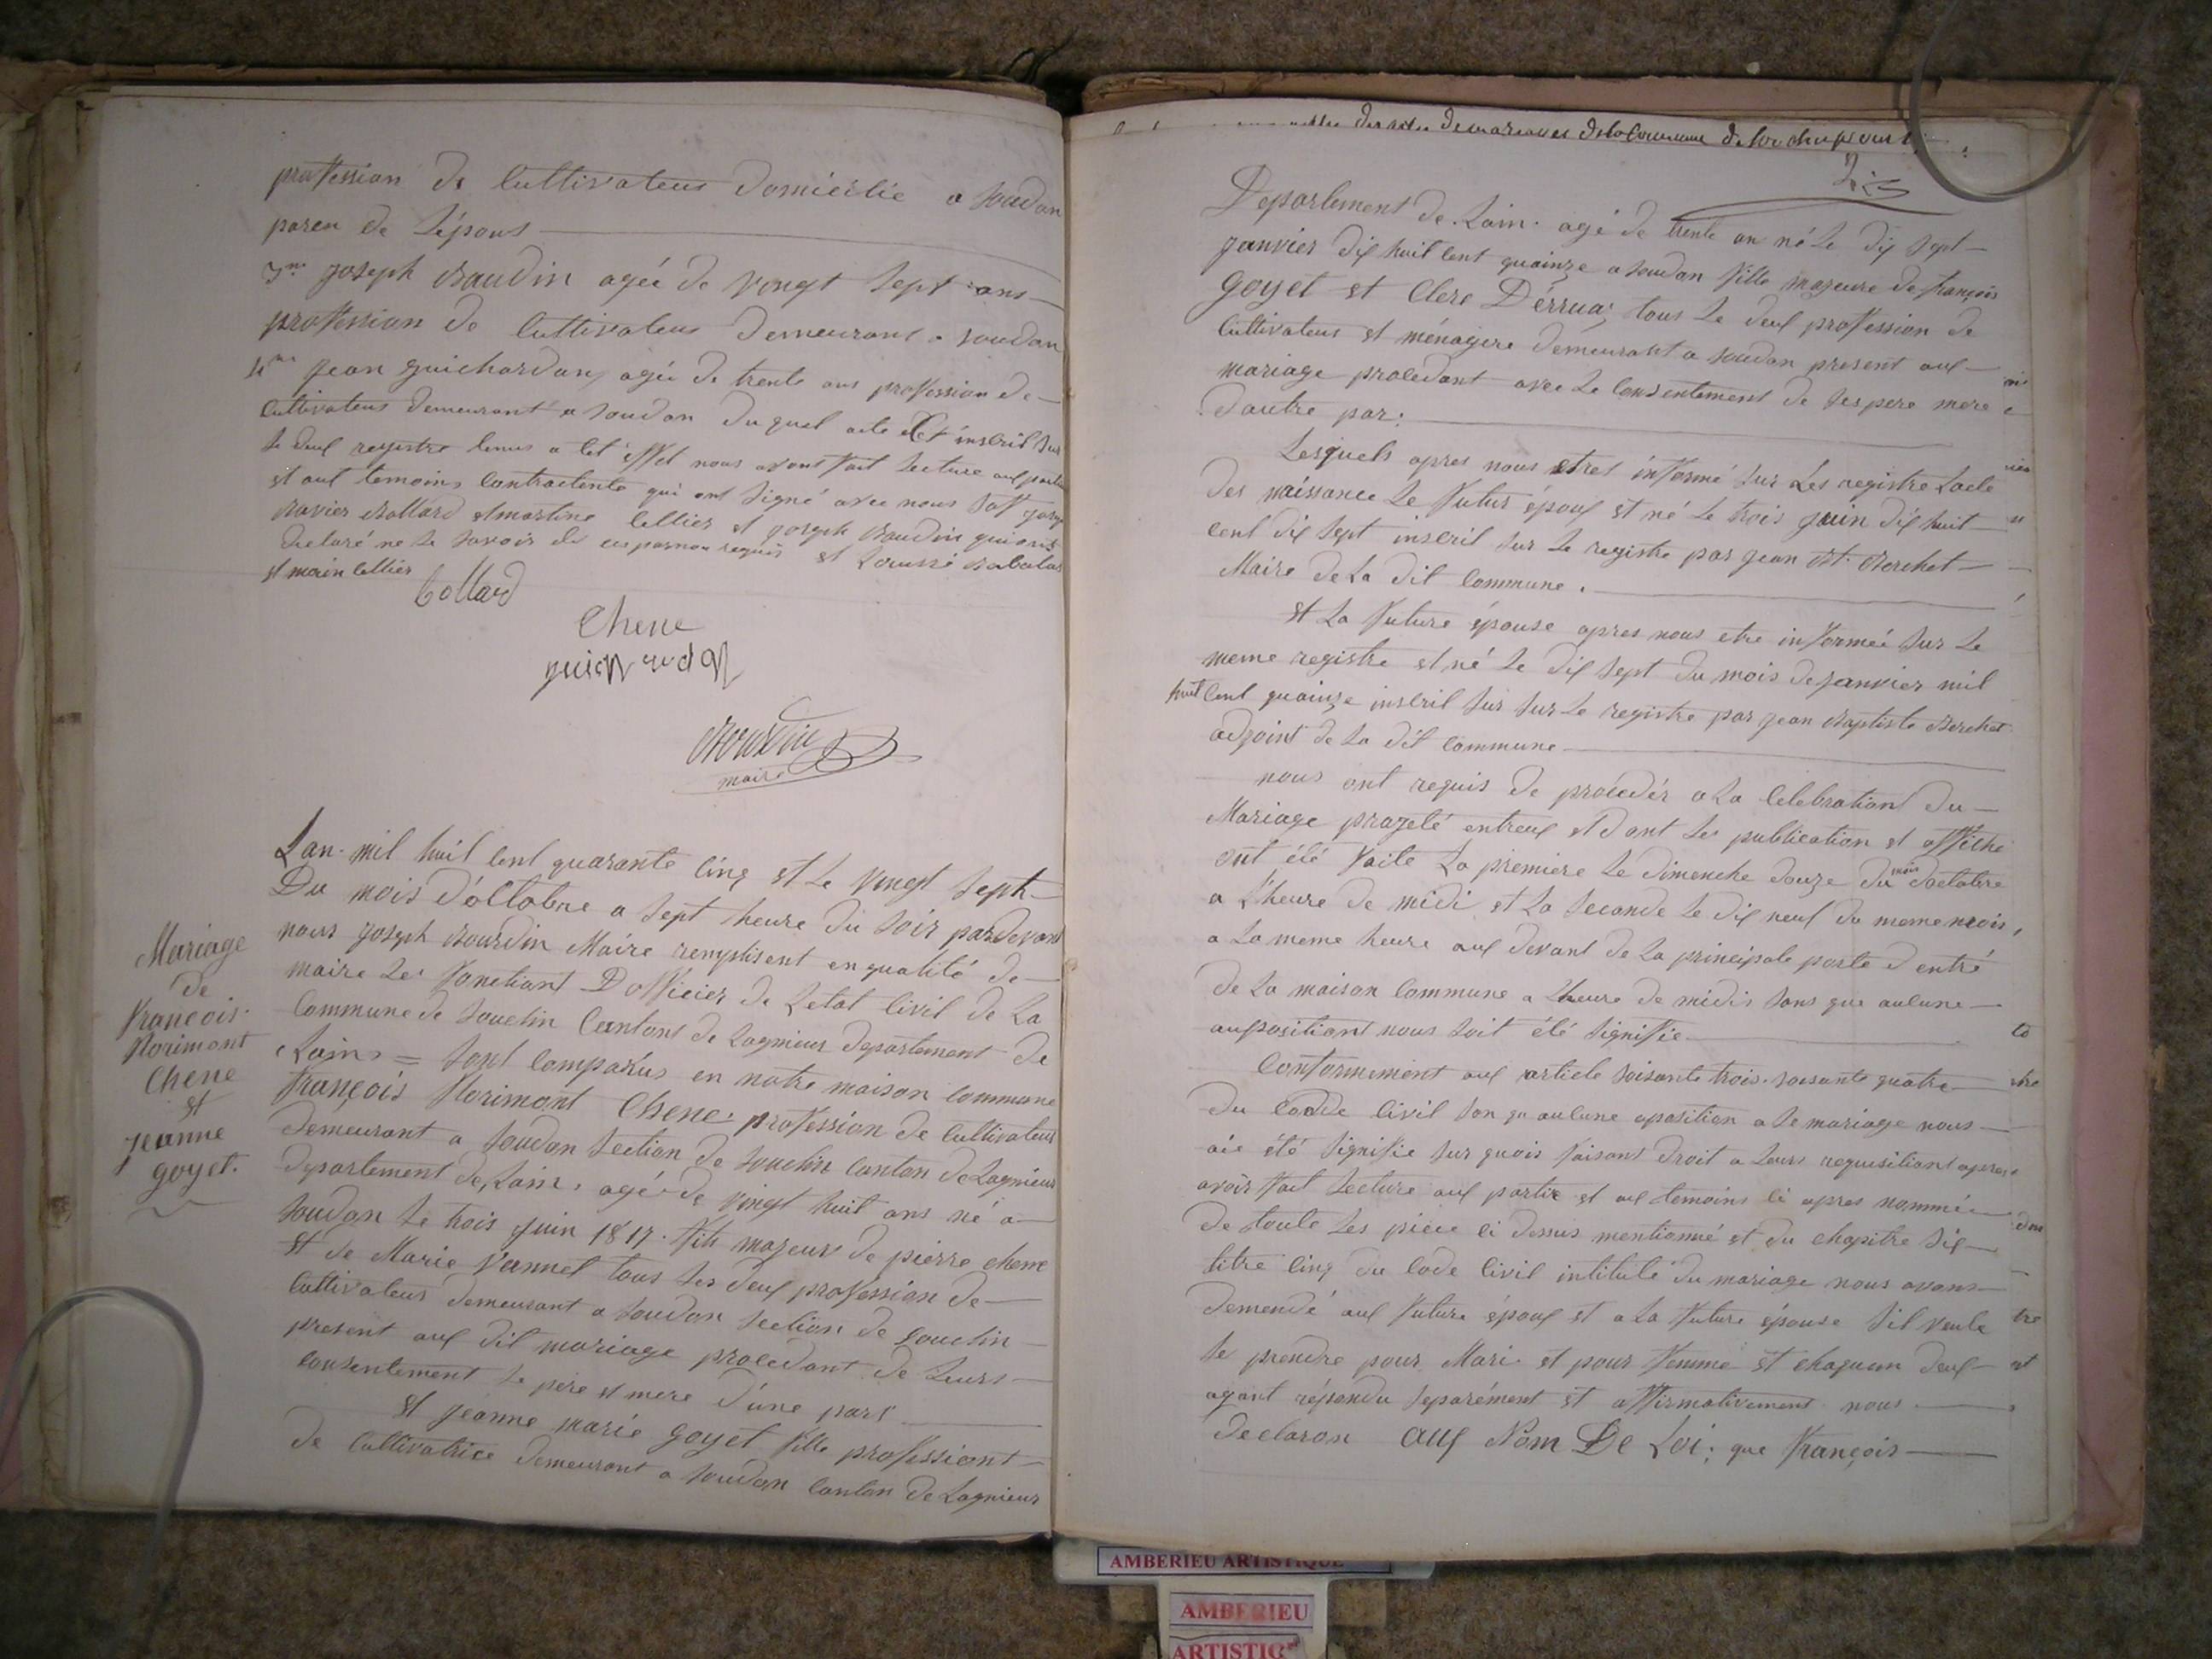 profession de Cultivateur domicilié a Soudon
paren de L'épous
3me joseph Baudin ageé de vingt Sept ans
profession de Cultivateur Demeurant a soudon
4me jean guichardon, ageé de trente ans profession de
Cultivateur demeurant a Soudon du quel acte est inscril sur
le deux registre tenus a cet effet nous avons fait Lecture aux partie
et aux temoins contractents qui ont Signé avec nous
Bollard et martine Cellier et joseph Baudin qui ont
declaré ne le savoir de ces
et Cellier
Collard
Chene
guichardon
Bourdin
maire
Lan mil huit cent quarante cinq et le vingt Sept
Du mois d'octobre a Sept heure du Soir pardevant
nous joseph Bourdin Maire remplisent en qualité de
maire Les fonctiont D officier de Letat Civil de La
Commune de Souclin Cantons de Lagnieux departement de
Lain = Sont Comparus en notre maison Commune
François florimont Chene profession de Cultivateur
demeurant a Soudon Section de Souclin Canton de Lagnieux
departement de Lain, agé de vingt huit ans né a
Soudon le trois juin 1817. fils majeur de pierre chene
et de Marie vannel tous les deux profession de
Cultivateur demeurant a Soudon Section de Souclin
present aux dit mariage procedant de Leurs
consentement le père et mere d'une part
et jeanne marie goyet fille professiont
de Cultivatrice demeurant a Soudon Canton de Lagnieux
Mariage
de
François
florimont
Chene
et
jeanne
goyet.
des actes de mariages de la Commune de Souclin pour
2
Departement de Lain. agé de trente an né Le dix Sept
janvier dix huit cent quainze a Soudon fille majeure de françois
goyet et Clere Dérrua, tous Le deux profession de
Cultivateur et ménagere demeurant a Soudon present aux
mariage procedant avec Le Consentement de Ses pere mere
d autre par.
Lesquels apres nous etres informé sur Les registre Lacte
des naissance Le futur époux et né Le trois juin dix huit
cent dix Sept inscril sur Le registre par jean Bt. Berchet
Maire de La dit Commune.
et La future épouse apres nous etre informeé sur Le
meme registre et né Le dix Sept du mois de janvier mil
huit cent quainze inscril sur sur Le registre par jean Baptiste Berchet
adjoint de La dit Commune
nous ont requis de procédér a La Celebrationt du
Mariage projeté entreux et dont Les publication et affiche
ont été faite La premiere Le dimenche douze du mois doctobre
a L'heure de midi et La Seconde Le dix neuf du meme mois,
a La meme heure aux devant de La principale porte d entré
de La maison Commune a Lheure de midis Sans que aucune
aupositiont nous Soit été Signifie
Conformement aux article Soisante trois. Soisante quatre
du Codde Civil San qu aucune oposition a Le mariage nous
aie été Signifie Sur quois faisant droit a Leurs requisitiont apres
avoir fait Lecture aux partie et aux temoins Ci apres nommé
De toute Les pièce Ci dessus mentionné et du chapitre Six
titre Cinq du Code Civil intitulé du mariage nous avons
demendé aux future époux et a La future épouse Sil veule
Se prendre pour Mari et pour femme et chaquun deux
ayant répondu Separément et affirmativement nous
declaron aux Nom De Loi; que François
AMBERIEU ARTISTIQUE
AMBERIEU
ARTISTIQ